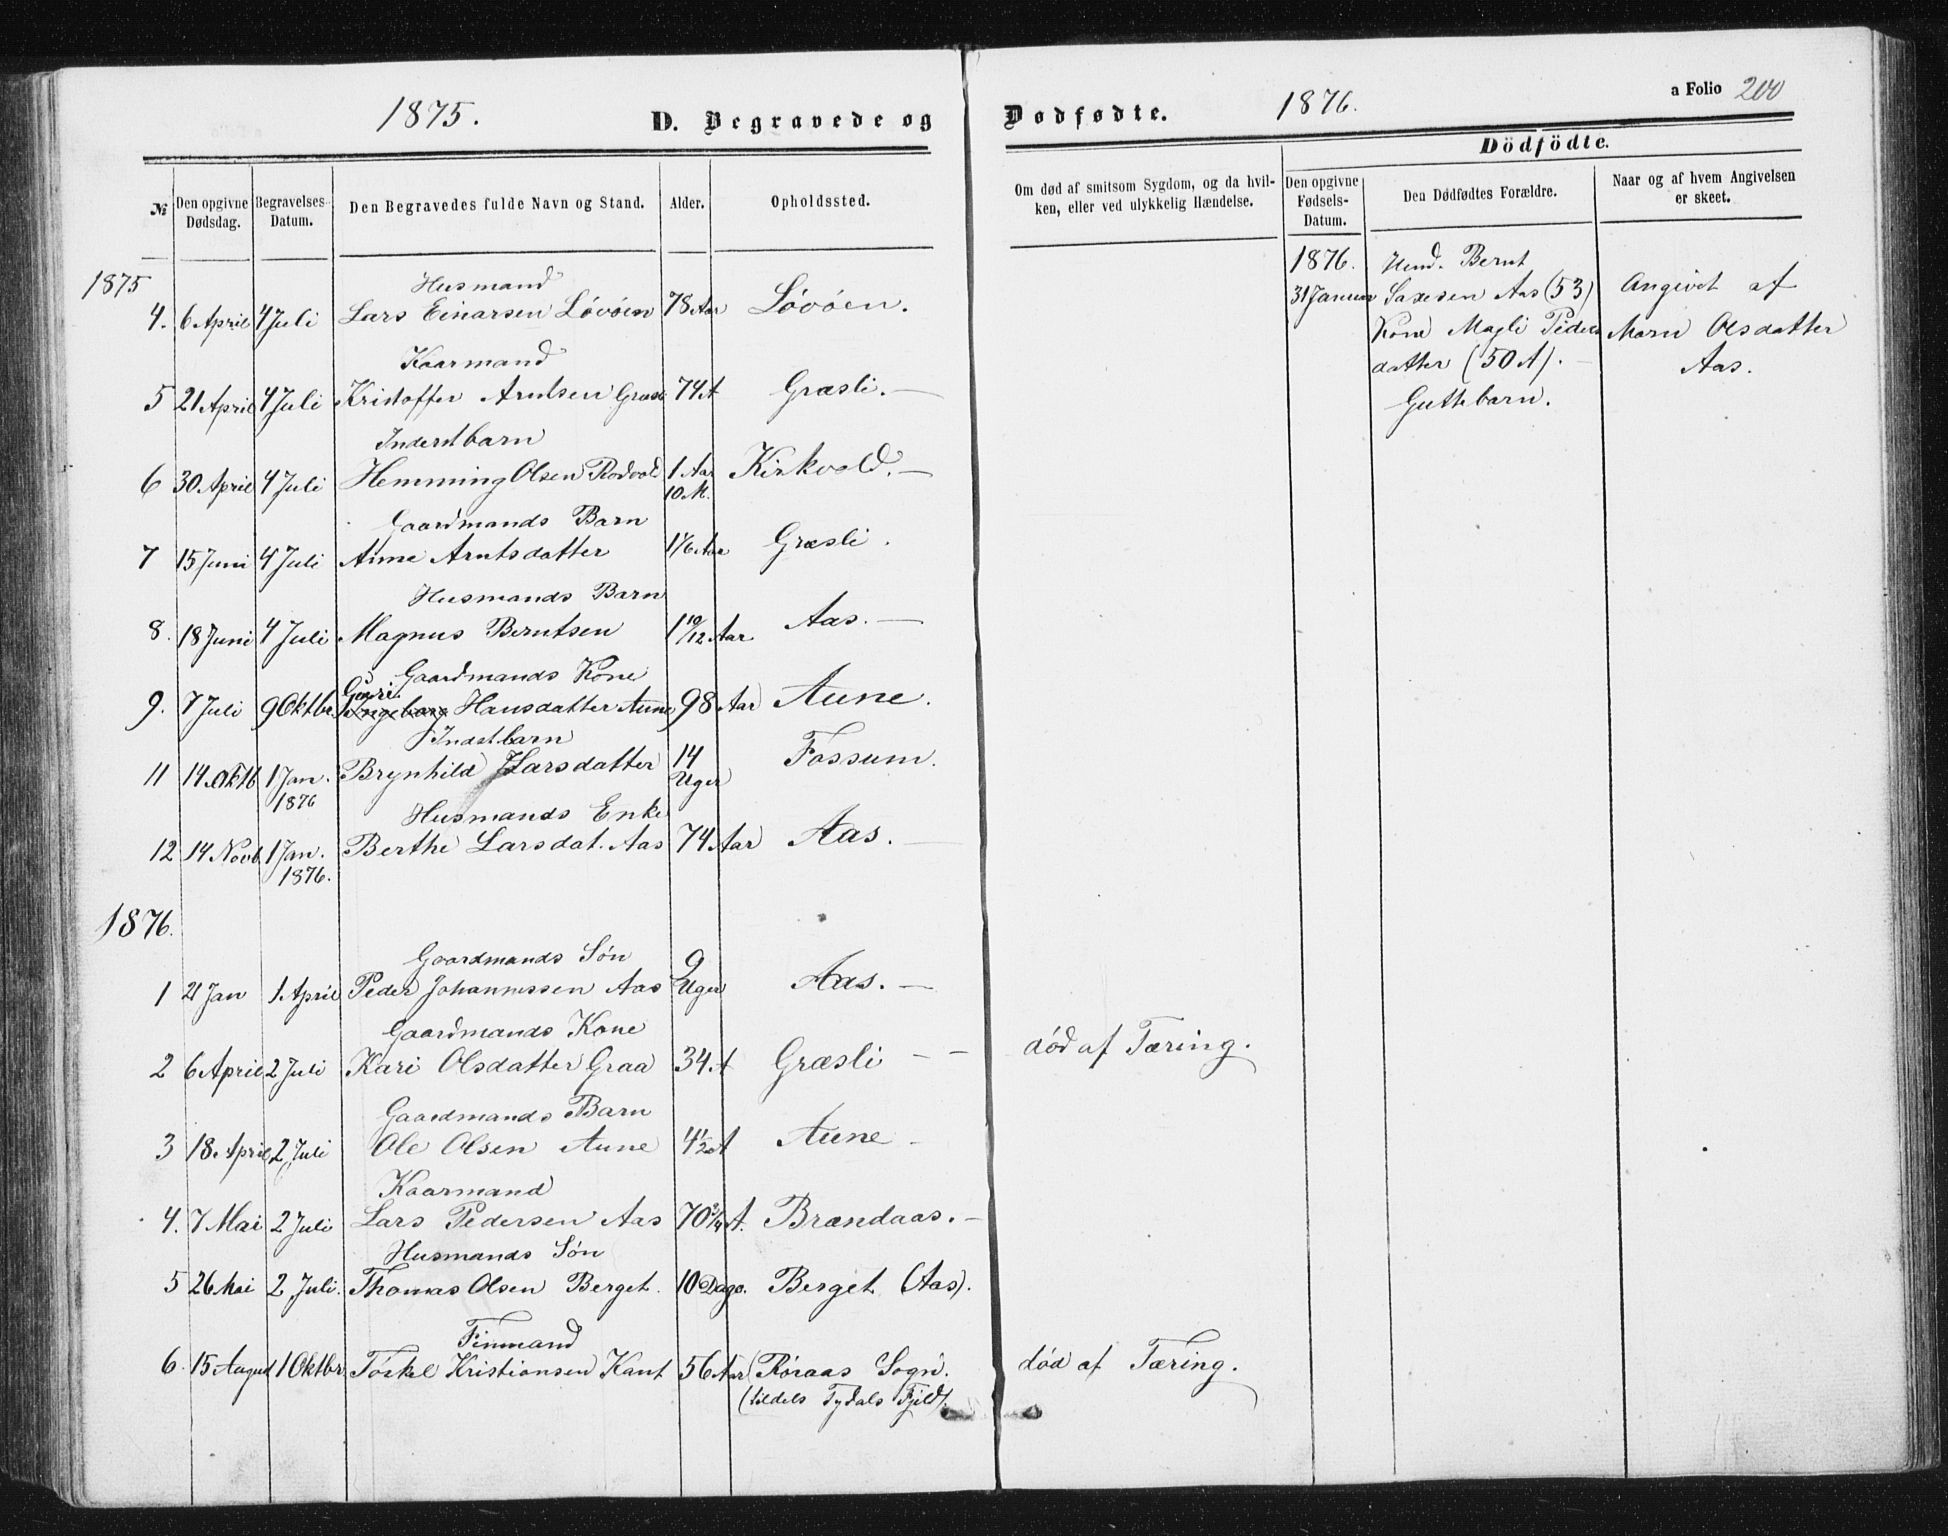 1875. D. Begravede og Dødfødte. 1876. a Folio 200
№ Den opgivne Dødsdag. Begravelses-Datum. Den Begravedes fulde Navn og Stand. Alder. Opholdssted.
Om død af smitsom Sygdom, og da hvil-
ken, eller ved ulykkelig Hændelse.
Dödfödte.
Den opgivne Fødsels-Datum. Den Dødfødtes Forældre. Naar og af hvem Angivelsen er skeet.
1875
Husmand
4. 6 April 4 Juli Lars Einarsen Løvøen 78 Aar Løvøen.
Kaarmand
5 21 April 4 Juli Kristoffer Arntsen 74 A Græsli. —
Inderstbarn
6 30 April 4 Juli Hemming Olsen Rodvold 1 Aar Kirkvold. —
10 M.
Gaardmands Barn
7 15 Juni 4 Juli Anne Arntsdatter 1 1/6 Aar Græsli.
Husmands Barn
8. 18 Juni 4 Juli Magnus Berntsen 1 10/12 Aar Aas. —
Gaardmands Kone
Guri
9. 7 Juli 9 Oktbr. Ingeborg Hansdatter Aune 98 Aar Aune.
Indstbarn
11 14 Oktb 1 Jan. Brynhild Larsdatter 14 Fossum.
1876 Uger
Husmands Enke
12 14 Novb. 1 Jan. Berthe Larsdat. Aas 74 Aar Aas. —
1876.
1876.
Gaardmands Søn
1 21 Jan 1 April Peder Johannessen Aas 9 Uger Aas. —
Gaardmands Kone
2 6 April 2 Juli Kari Olsdatter Graa 34 A Græsli — — død af Tæring.
Gaardmands Barn
3 18 April 2 Juli Ole Olsen Aune 4 1/2 A Aune —
Kaarmand
4. 7 Mai 2 Juli Lars Pedersen Aas 70 3/4 A. Brændaas. —
Husmands Søn
5 26 Mai 2 Juli. Thomas Olsen Berget. 10 Dage. Berget (Aas).
Finmand
6. 15 August 1 Oktbr. Tøskel Kristiansen Kant 56 Aar Røraas Sogn. død af Tæring.
(tildels Tydals Fjeld).
1876. Bernt
31 Januar Saxesen Aas (53) Angivet af
Kone Magli Peders Marn Olsdatter
datter (50 A). — Aas.
Guttebarn.